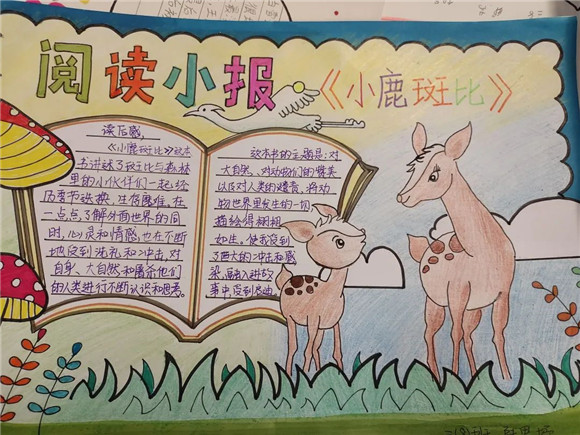 阅读小报《小鹿斑比》
读后感
《小鹿斑比》这本
书讲述了斑比与森林
里的小伙伴们一起经
历季节转换、生存磨难,在
一点点了解外面世界的同
时,心灵和情感也在不断
地受到洗礼和冲击,对
自身、大自然和屠杀他们
的人类进行不断认识和思考。
这本书的主题是:对
大自然、对动物们的赞美
以及对人类的谴责,将动
物世界里发生的一切
描绘得栩栩
如生,使我受到
了巨大的冲击和感
染,融入进故
事中受到